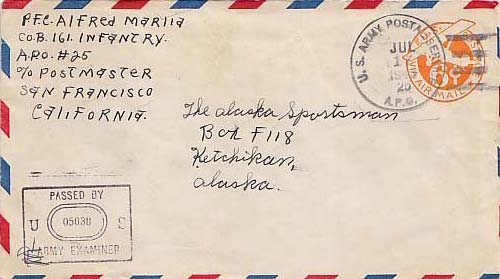 P.F.C. Alfred Marlia
Co.B. 161. Infantry.
A.P.O. #25
% Postmaster
San Francisco
California.
U.S. ARMY POSTAL SER
JUL
25
A.P.O.
VIA AIR MAIL
The Alaska Sportsman
Box F118
Ketchikan,
Alaska.
PASSED BY
U 05038 S
ARMY EXAMINER